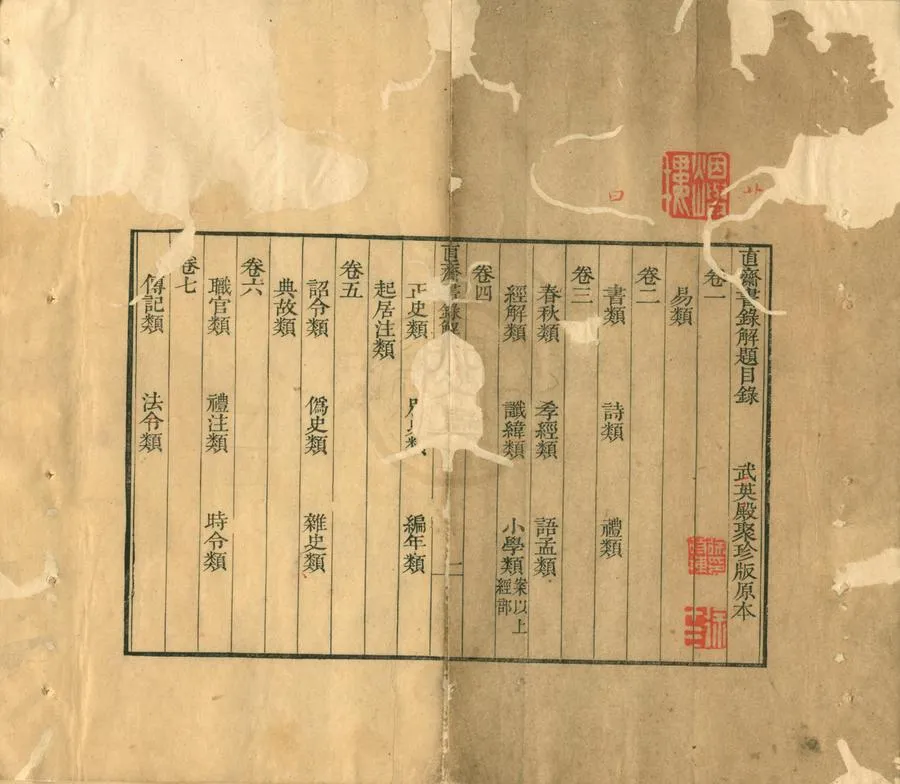 直齋書錄解題目錄 武英殿聚珍版原本
卷一
易類
卷二
書類 詩類 禮類
卷三
春秋類 孝經類 語孟類
經解類 讖緯類 小學類 案以上經部
卷四
直齋書錄解
正史類 別史類 編年類
起居注類
卷五
詔令類 僞史類 雜史類
典故類
卷六
職官類 禮注類 時令類
卷七
傳記類 法令類
烟嶼樓